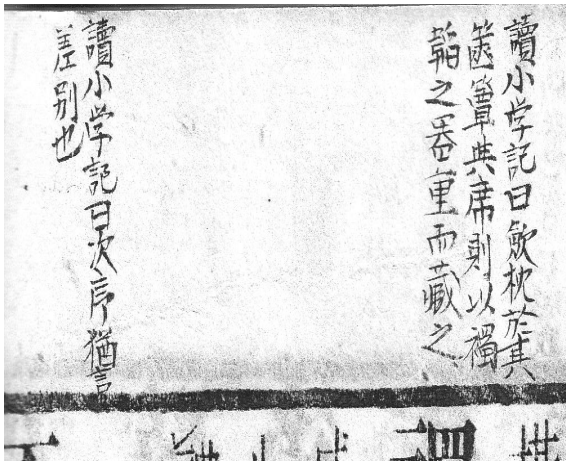 讀小学記曰斂枕於其
篋簟與席則以襡
韜之器重而藏之
讀小学記曰次序猶言
差別也